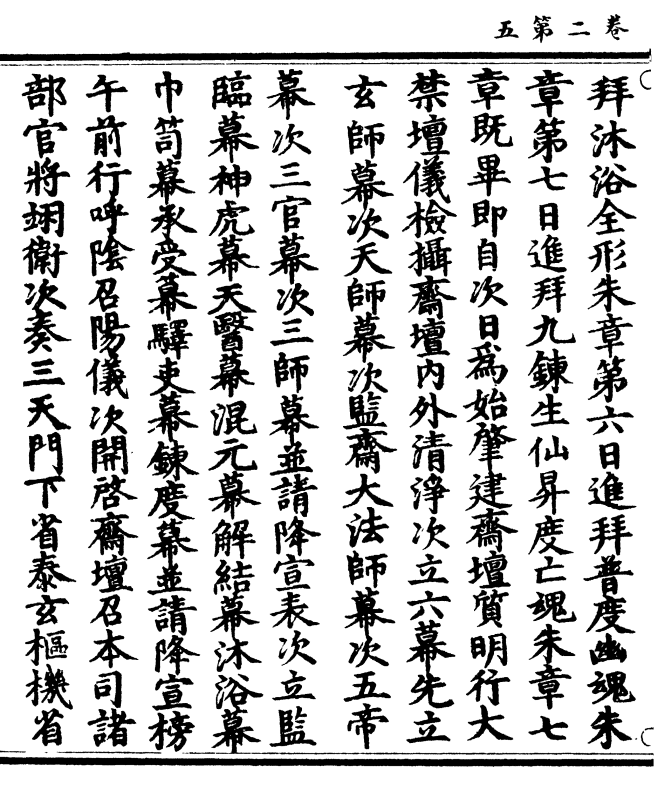 卷二第五
拜沐浴全形朱章第六日進拜普度幽魂朱
章第七日進拜九鍊生仙昇度亡魂朱章七
章既畢即自次日爲始肇建齋壇質明行大
禁壇儀檢攝齋壇內外清淨次立六幕先立
玄師幕次天師幕次監齋大法師幕次五帝
幕次三官幕次三師幕並請降宣表次立監
臨幕神虎幕天醫幕混元幕解結幕沐浴幕
巾笥幕承受幕驛吏幕鍊度幕並請降宣榜
午前行呼陰召陽儀次開啓齋壇召本司諸
部官將翊衛次奏三天門下省泰玄樞機省